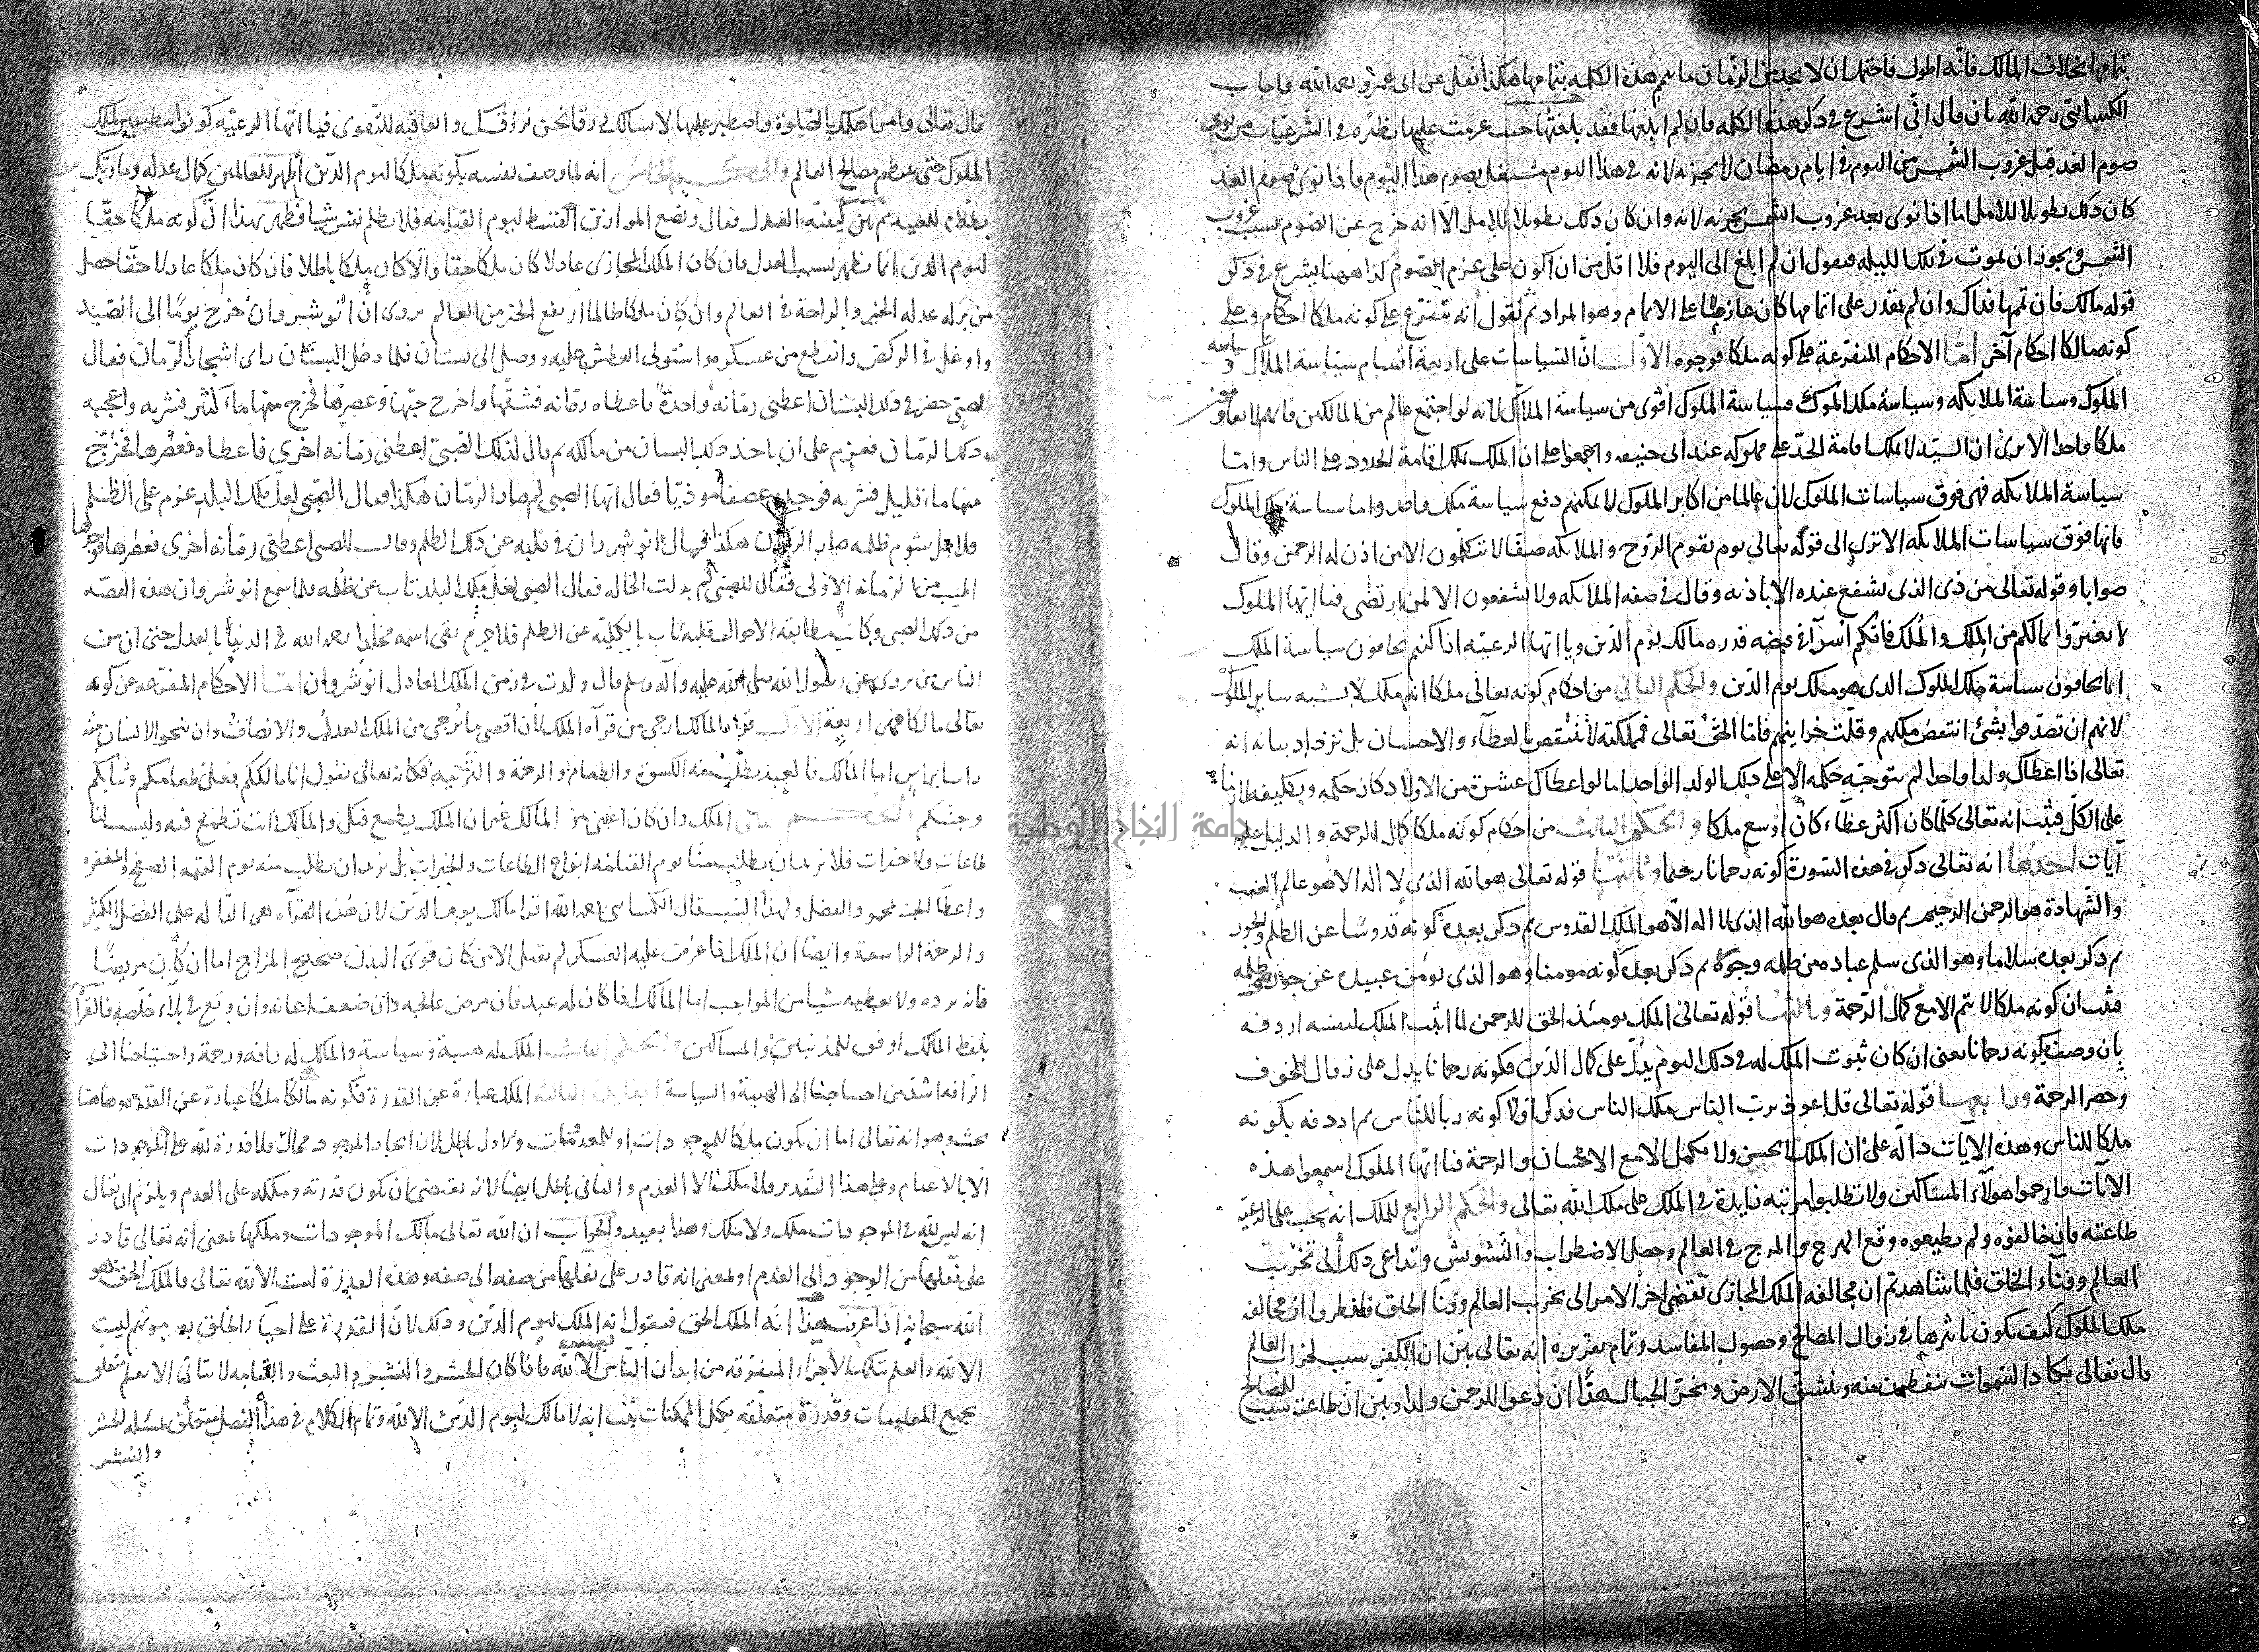 تمامها بخلاف المالك فانه اطول فاحتمل ان لا يجد من الزمان ما يتم هذه الكلمة بتمامها هكذا نقل عن ابى عمرو رحمه الله واجاب
الكسائى رحمه الله بان قال انى اشرع فى ذكر هذه الكلمة فان لم ابلغها فقد بلغتها حيث عزمت عليها نظيره فى الشرعيات من نوى
صوم الغد قبل غروب الشمس من اليوم فى ايام رمضان لا يجزيه لانه فى هذا اليوم مشتغل بصوم هذا اليوم فاذا نوى صوم الغد
كان ذلك تطويلا للامل اما اذا نوى بعد غروب الشمس يجزيه لانه وان كان ذلك تطويلا للامل الا انه خرج عن الصوم بسبب غروب
الشمس ويجوز ان يموت فى تلك الليلة فيقول ان لم ابلغ الى اليوم فلا اقل من ان اكون على عزم الصوم كذا ههنا يشرع فى ذكر
قوله مالك فان تممها فذاك وان لم يقدر على اتمامها كان عازما على الاتمام وهو المراد ثم نقول انه يتفرع على كونه ملكا احكام وعلى
كونه مالكا احكام آخر اما الاحكام المتفرعة على كونه ملكا فوجوه الاول ان السياسات على اربعة اقسام سياسة الملاك و سياسة
الملوك وسياسة الملائكة وسياسة ملك الملوك فسياسة الملوك اقوى من سياسة الملاك لانه لو اجتمع عالم من المالكين فانهم لا يقاومون
ملكا واحدا الا ترى ان السيد لا يملك اقامة الحد على مملوكه عند ابى حنيفه واجمعوا على ان الملك يملك اقامة الحدود على الناس واما
سياسة الملائكه فهى فوق سياسات الملوك لان عالما من اكابر الملوك لا يمكنهم دفع سياسة ملك واحد واما سياسة ملك الملوك
فانها فوق سياسات الملائكه الا ترى الى قوله تعالى يوم يقوم الروح والملائكه صفا لا يتكلمون الا من اذن له الرحمن وقال
صوابا وقوله تعالى من ذى الذى يشفع عنده الا باذنه وقال فى صفه الملائكه ولا يشفعون الا لمن ارتضى فيا ايها الملوك
لا تغتروا بمالكم من الملك والملك فانكم اسرآ فى قبضه قدره مالك يوم الدين ويا ايها الرعيه اذا كنتم تخافون سياسة الملك
اما تخافون سياسة ملك الملوك الذى هو ملك يوم الدين والحكم الثانى من احكام كونه تعالى ملكا انه ملك لا يشبه ساير الملوك
لانهم ان تصدقوا بشئ انتقص ملكهم وقلت خزاينهم فاما الحق تعالى فمملكته لا تنتقص بالعطآء والاحسان بل تزداد بيانه انه
تعالى اذا اعطاك ولدا واحدا لم يتوجه حكمه الا على ذلك الولد الواحد اما لو اعطاك عشرة من الاولاد كان حكمه وتكليفه لازما
على الكل فثبت انه تعالى كلما كان اكثر عطآء كان اوسع ملكا والحكم الثالث من احكام كونه ملكا كمال الرحمة والدليل عليه
آيات احدها انه تعالى ذكر فى هذه السورة كونه رحمانا رحيما وثانيها قوله تعالى هو الله الذى لا اله الا هو عالم الغيب
والشهادة هو الرحمن الرحيم ثم قال بعده هو الله الذى لا اله الا هو الملك القدوس ثم ذكر بعده كونه قدوسا عن الظلم والجور
ثم ذكر بعده سلاما وهو الذى سلم عباده من ظلمه وجوره ثم ذكر بعده كونه مومنا وهو الذى يؤمن عبيده عن جوره وظلمه
فثبت ان كونه ملكا لا يتم الا مع كمال الرحمة وثالثها قوله تعالى الملك يومئذ الحق للرحمن لما اثبت الملك لنفسه اردفه
بان وصف بكونه رحمانا يعنى ان كان ثبوت الملك له فى ذلك اليوم يدل على كمال فكونه رحمانا يدل على زوال الخوف
وحصر الرحمة ورابعها قوله تعالى قل اعوذ برب الناس ملك الناس فذكر اولا كونه ربا للناس ثم اردفه بكونه
ملكا للناس وهذه الايات دالة على ان الملك لا يحسن ولا يكمل الا مع الاحسان والرحمة فيا ايها الملوك اسمعوا هذه
الآيات وارحموا هولآء المساكين ولا تطلبوا مرتبه زايدة فى الملك على ملك الله تعالى والحكم الرابع للملك انه يجب على الرعية
طاعته فان خالفوه ولم يطيعوه وقع الهرج والمرج فى العالم وحصل الاضطراب والتشويش وتداعى ذلك الى تخريب
العالم وفنآء الخلق فلما شاهدتم ان مخالفة الملك المجازى تفضى اخر الامر الى تخرب العالم وفنا الخلق فانظروا ان مخالفة
ملك الملوك كيف يكون تاثيرها فى زوال المصالح وحصول المفاسد وتمام تقريره انه تعالى بين ان الكفر سبب لخراب العالم
قال تعالى تكاد السموات يتفطرن منه وتنشق الارض وتخر الجبال هدا ان دعوا للرحمن ولدا وبين ان طاعته سبب للمصالح
قال تعالى وامر اهلك بالصلوة واصطبر عليها لا نسالك رزقا نحن نرزقك والعاقبه للتقوى فيا ايها الرعيه كونوا مطيعين لملك
الملوك حتى ينتظم مصالح العالم والحكم الخامس انه لما وصف نفسه بكونه ملكا ليوم الدين اظهر للعالمين كمال عدله وما ربك
بظلام للعبيد ثم بين كيفيه العدل فقال ونضع الموازين القسط ليوم القيامه فلا تظلم نفس شيا فظهر بهذا ان كونه ملكا حقا
ليوم الدين انما يظهر بسبب العدل فان كان الملك المجازى عادلا كان ملكا حقا والا كان ملكا باطلا فان كان ملكا عادلا حقا حصل
من بركه عدله الخير والراحة فى العالم وان كان ملكا ظالما ارتفع الخير من العالم يروى ان انوشروان خرج يوما الى الصيد
واوغل فى الركض وانقطع من عسكره واستولى العطش عليه ووصل الى بستان فلما دخل البستان راى اشجار الرمان فقال
لصبى حضر فى ذلك البستان اعطنى رمانه واحدة فاعطاه رمانه فشقها واخرج حبها وعصرها فخرج منها مآء كثير فشربه واعجبه
ذلك الرمان فعزم على ان ياخذ ذلك البستان من مالكه ثم قال لذلك الصبى اعطنى رمانه اخرى فاعطاه فعصرها فخرج
منها مآء قليل فشربه فوجده عفصا موذيا فقال ايها الصبى لم صار الرمان هكذا فقال الصبى لعل ملك البلد عزم على الظلم
فلاجل شوم ظلمه صار الرمان هكذا فتاب انوشروان فى قلبه عن ذلك الظلم وقال للصبى اعطنى رمانه اخرى فعصرها فوجدها
اطيب من الرمانه الاولى فقال للصبى لم بدلت الحاله فقال الصبى لعل ملك البلد تاب عن ظلمه فلما سمع انوشروان هذه القصه
من ذلك الصبى وكانت مطابقه لاحوال قلبه تاب بالكليه عن الظلم فلا جرم بقى اسمه مخلدا فى الدنيا بالعدل حتى ان من
الناس من يروى عن رسول الله صلى الله عليه وآله وسلم قال ولدت فى زمن الملك العادل انوشروان اما الاحكام المتفرعه عن كونه
تعالى مالكا فهى اربعة الاول قراة المالك ارجى من قرآه الملك لان اقصى ما يرجى من الملك العدل والانصاف وان ينجو الانسان منه
راسا براس اما المالك فالعبد يطلب منه الكسوة والطعام والرحمة والتربيه فكانه تعالى يقول انا مالككم فعلى طعامكم وثيابكم
وجنتكم الحكم الثانى الملك وان كان اغنى من المالك غير ان الملك يطمع فيك والمالك انت تطمع فيه وليست لنا
طاعات ولا خيرات فلا يريد ان يطلب منا يوم القيامه انواع الطاعات والخيرات بل يريد ان نطلب منه يوم القيمه الصفح والمغفره
واعطآ الجنه بمجرد الفضل ولهذا السبب قال الكسائى رحمه الله اقرا مالك يوم الدين لان هذه القرآه هى الداله على الفضل الكثير
والرحمة الواسعة وايضا ان الملك اذا عرضت عليه العسكر لم يقبل الا من كان قوى البدن صحيح المزاج اما ان كان مريضا
فانه يرده ولا يعطيه شيا من المواجب اما المالك اذا كان له عبد فان مرض عالجه وان ضعف اعانه وان وقع فى بلآء خلصه فالقرآة
بلفظ المالك اوفق للمذنبين والمساكين والحكم الثالث الملك له هيبة وسياسة والمالك له رافه ورحمة واحتياجنا الى
الرافه اشد من احتياجنا الى الهيبة والسياسة الفايدة الثالثة الملك عبارة عن القدرة فكونه مالكا ملكا عبارة عن القدره وهاهنا
بحث وهو انه تعالى اما ان يكون ملكا للموجودات او للمعدومات والاول باطل لان ايجاد الموجود محال فلا قدرة لله على الموجودات
الا بالاعدام وعلى هذا التقدير فلا ملك الا العدم والثانى باطل ايضا لانه يقتضى ان يكون قدرته وملكه على العدم ويلزم ان يقال
انه ليس لله فى الموجودات ملك ولا ملك وهذا بعيد والجواب ان الله تعالى مالك الموجودات وملكها بمعنى انه تعالى قادر
على نقلها من الوجود الى العدم او بمعنى انه قادر على نقلها من صفه الى صفه وهذه القدرة ليست الا لله تعالى فالملك الحق هو
الله سبحانه اذا عرفت هذا انه الملك الحق فنقول انه الملك ليوم الدين وذلك لان القدرة على احيآء الخلق بعد موتهم ليست
الا لله والعلم بتلك الاجزاء المتفرقه من ابدان الناس ليس الا لله فاذا كان الحشر والنشر والبعث والقيامه لا يتاتى الا بعلم متعلق
بجميع المعلومات وقدرة متعلقه بكل الممكنات ثبت انه لا مالك ليوم الدين الا الله وتمام الكلام فى هذا الفصل متعلق بمسئله الحشر
والنشر
جامعة النجاح الوطنية